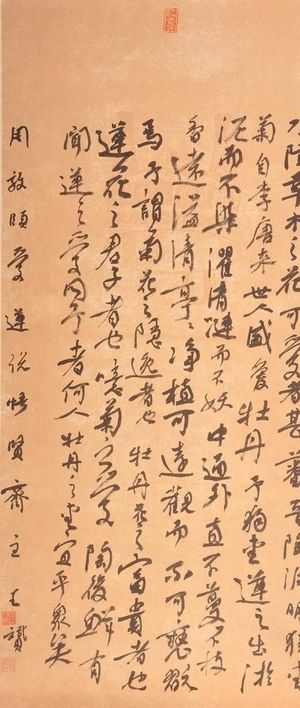 水陸草木之花可愛者甚蕃晋陶淵明獨愛
菊自李唐来世人盛愛牡丹予獨愛蓮之出淤
泥而不染濯清漣而不妖中通外直不蔓不枝
香遠溢清亭々净植可遠觀而不可褻翫
焉予謂菊花之隱逸者也牡丹花之富貴者也
蓮花之君子者也噫菊之愛陶後鮮有
聞蓮之愛同予者何人牡丹之愛宜乎衆矣
周敦頤愛蓮説悟賢齋主